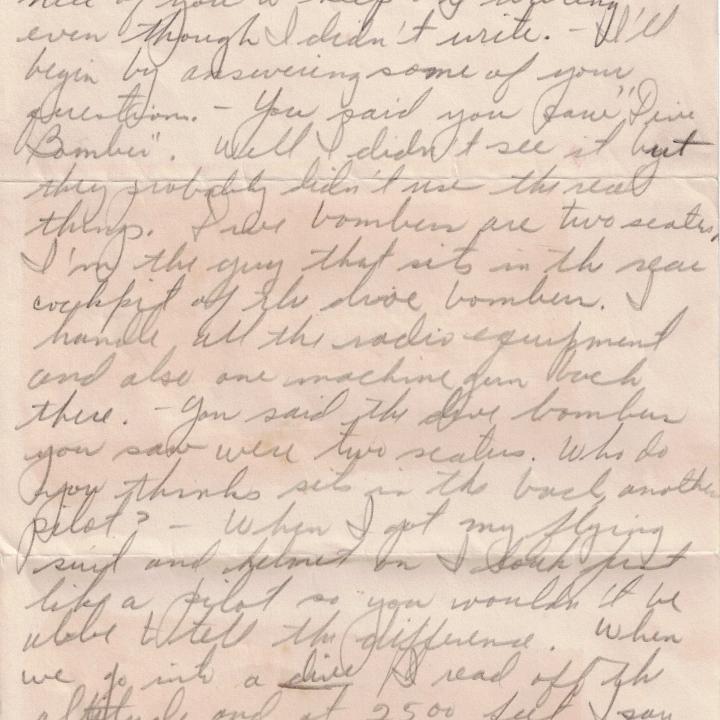 nice of you to keep on writing
even though I didn't write. - I'll
begin by answering some of your
questions. - You said you saw "Dive
Bomber". Well I didn't see it but
they probably didn't use the real
things. Dive bombers are two seaters,
I'm the guy that sits in the rear
cockpit of the dive bomber. I
handle all the radio equipment
and also one machine gun back
there. - You said the dive bombers
you saw were two seaters. Who do
you thinks sits in the back, another
pilot? - When I got my flying
suit and helmet on I look just
like a pilot so you wouldn't be
able to tell the difference. When
we go into a dive I read off the
altitude and at 2500 feet I say